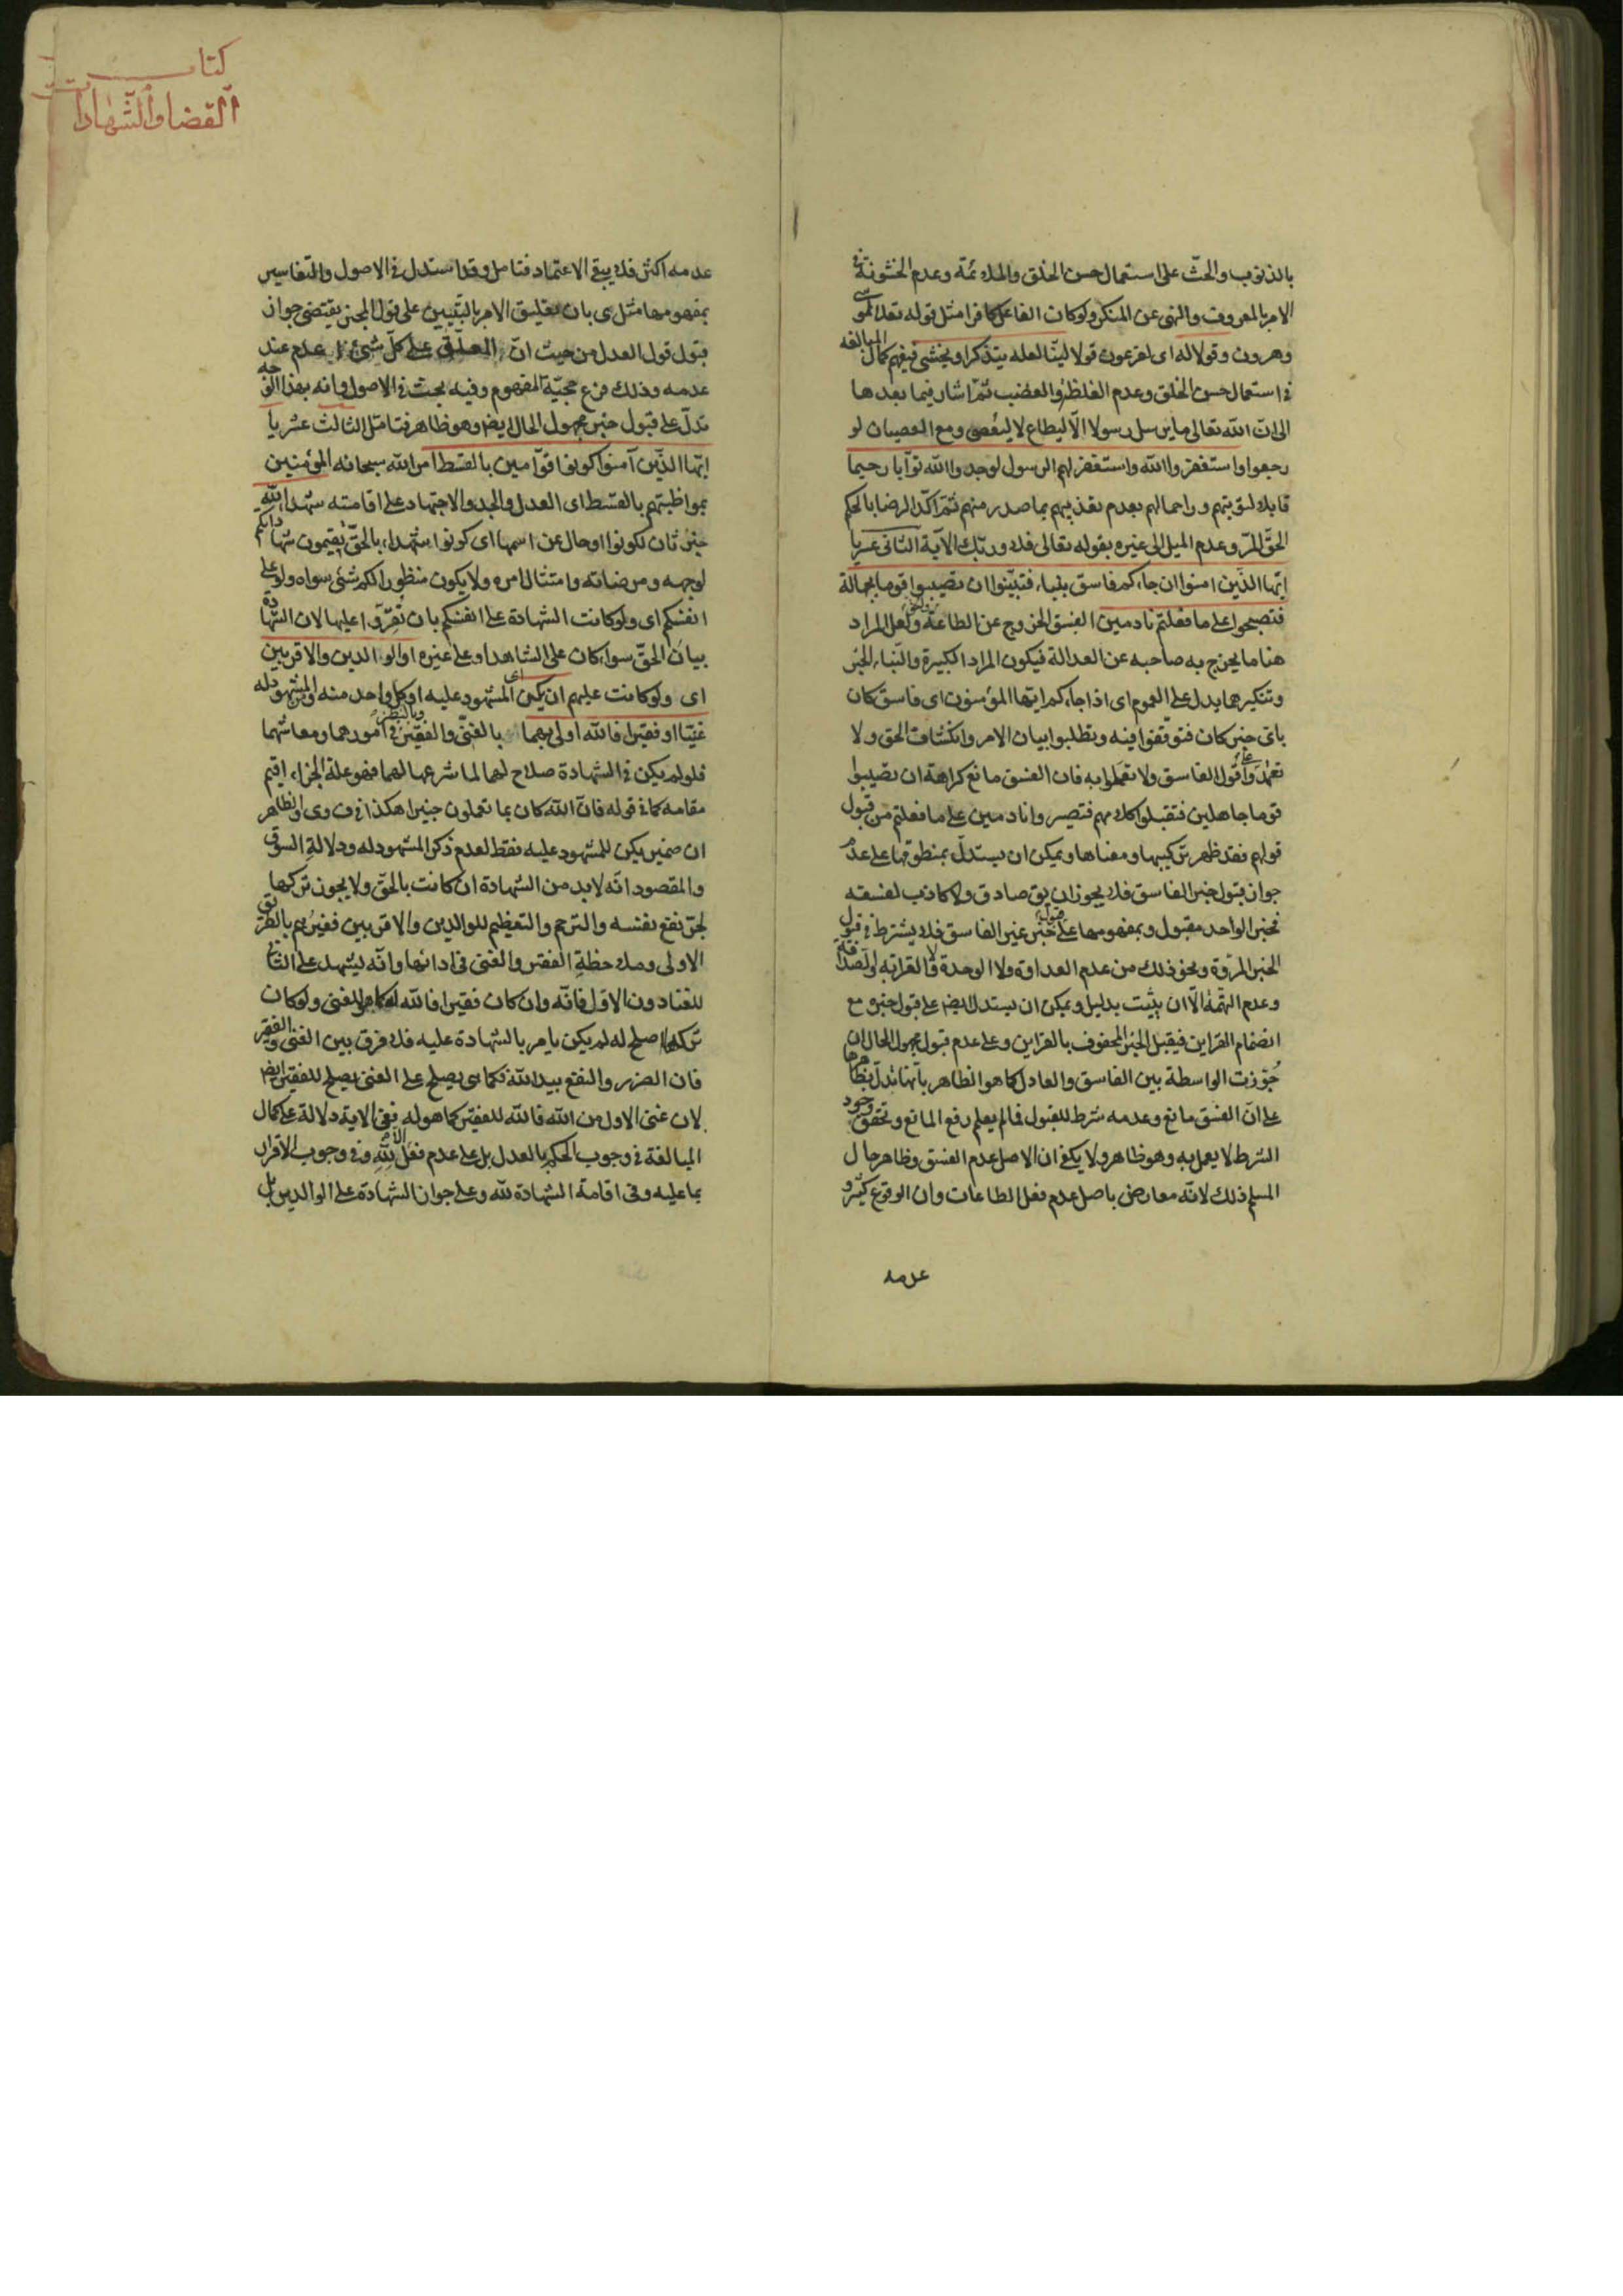 بالذنوب والحث على استعمال حسن الخلق والملائمة وعدم الخشونة في
الامر بالمعروف والنهى عن المنكر ولو كان الفاعل كافرا مثل قوله تعالى لموسى
وهرون وقولا له اى لفرعون قولا لينا لعله يتذكر او يخشى فيفهم كمال المبالغه
في استعمال حسن الخلق وعدم الغلظة والغضب ثم اشار فيما بعدها
الى ان الله تعالى ما يرسل رسولا الا ليطاع لا ليعصى ومع العصيان لو
رجعوا واستغفروا الله واستغفر لهم الرسول لوجدوا الله توابا رحيما
قابلا لتوبتهم وراحما لهم بعدم تعذيبهم بما صدر منهم ثم اكد الرضا بالحكم
الحق المر وعدم الميل الى غيره بقوله تعالى فلا وربك الآية الثانى عشر يا
ايها الذين امنوا ان جاءكم فاسق بنباء فتبينوا ان تصيبوا قوما بجهالة
فتصبحوا على ما فعلتم نادمين الفسق الخروج عن الطاعة ولعل المراد
هنا ما يخرج به صاحبه عن العدالة فيكون المراد الكبيرة والنباء الخبر
وتنكيرهما يدل على العموم اى اذا جاءكم ايها المؤمنون اى فاسق كان
باى خبر كان فتوقفوا فيه وتطلبوا بيان الامر وانكشاف الحق ولا
تعتمدوا على قول الفاسق ولا تعملوا به فان الفسق مانع كراهة ان تصيبوا
قوما جاهلين فتقبلوا كلامهم فتصيروا نادمين على ما فعلتم من قبول
قولهم فقد ظهر تركيبها ومعناها ويمكن ان يستدل بمنطوقها على عدم
جواز قبول خبر الفاسق فلا يجوز ان يق صادق ولا كاذب لفسقه
فخبر الواحد مقبول وبمفهومها على قبول خبر غير الفاسق فلا يشترط في قبول
الخبر المروة ونحو ذلك من عدم العداوة ولا الوحدة ولا القرابه او الصداقة
وعدم التهمة الا ان يثبت بدليل ويمكن ان يستدل ايضا على قبول خبره مع
انضمام القراين فيقبل الخبر المحفوف بالقراين وعلى عدم قبول مجهول الحال ان
جوزت الواسطة بين الفاسق والعادل كما هو الظاهر بانها تدل بظاهرها
على ان الفسق مانع وعدمه شرط للقبول فما لم يعلم رفع المانع وتحقق وجود
الشرط لا يعمل به وهو ظاهر ولا يكفى ان الاصل عدم الفسق وظاهر حال
المسلم ذلك لانه معارض باصل عدم فعل الطاعات وان الوقوع كثير و
عدمه
كتاب
القضا والشهادات
عدمه اكثر فلا يبقى الاعتماد فتامل وقد استدل في الاصول والتفاسير
بمفهومها مثل ى بان تعليق الامر بالتبيين على قول المخبر يقتضى جواز
قبول قول العدل من حيث ان المعلق على كل شئ عدم عند
عدمه وذلك فرع حجية المفهوم وفيه بحث في الاصول وانه بهذا الوجه
تدل على قبول خبر مجهول الحال ايضا وهو ظاهر فتامل الثالث عشر يا
ايها الذين آمنوا كونوا قوامين بالقسط امر الله سبحانه المؤمنين
بمواظبتهم بالقسط اى العدل والجد والاجتهاد على اقامته شهداء لله
خبر ثان لكونوا او حال عن اسمها اى كونوا شهداء بالحق تقيمون شهاداتكم
لوجهه ومرضاته وامتثال امره ولا يكون منظورا لكم شئ سواه ولو على
انفسكم اى ولو كانت الشهادة على انفسكم بان تقروا عليها لان الشهادة
بيان الحق سواء كان على الشاهد او على غيره او الوالدين والاقربين
اى ولو كانت عليهم ان يكن اى المشهود عليه او كل واحد منه والمشهود له
غنيا او فقيرا فالله اولى بهما بالغنى والفقير وبالنظر في امورهما ومعاشهما
فلو لم يكن في الشهادة صلاح لهما لما شرعها لهما فهو علة الجزاء اقيم
مقامه كما في قوله فان الله كان بما تعملون خبيرا هكذا في ف وى والظاهر
ان ضمير يكن للمشهود عليه فقط لعدم ذكر المشهود له ودلالة السوق
والمقصود انه لابد من الشهادة ان كانت بالحق ولا يجوز تركها
لجر نفع نفسه والترحم والتعظيم للوالدين والاقربين فغيرهم بالطريق
الاولى وملاحظة الفقر والغنى في ادائها وانه ليشهد على الثانى
للغنا دون الاول فانه وان كان فقيرا فالله له كما هو للغنى ولو كان
تركها اصلح له لم يكن يامر بالشهادة عليه فلا فرق بين الغنى والفقير
فان الضرر والنفع بيد الله فكما يصلح على الغنى يصلح للفقير ايضا
لان غنى الاول من الله فالله للفقير كما هو له ففى الاية دلالة على كمال
المبالغة في وجوب الحكم بالعدل بل على عدم فعل الا لله وفي وجوب الاقرار
بما عليه وفى اقامة الشهادة لله وعلى جواز الشهادة على الوالدين بل